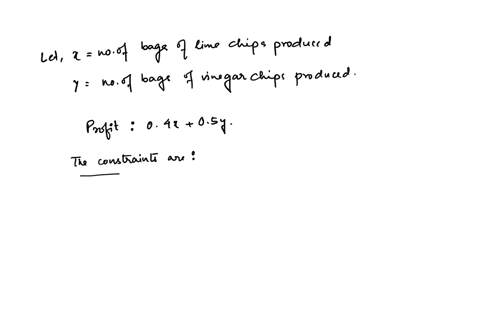 Let, x = no. of bags of lime chips produced
y = no. of bags of vinegar chips produced.
Profit : 0.4x + 0.5y.
The constraints are :